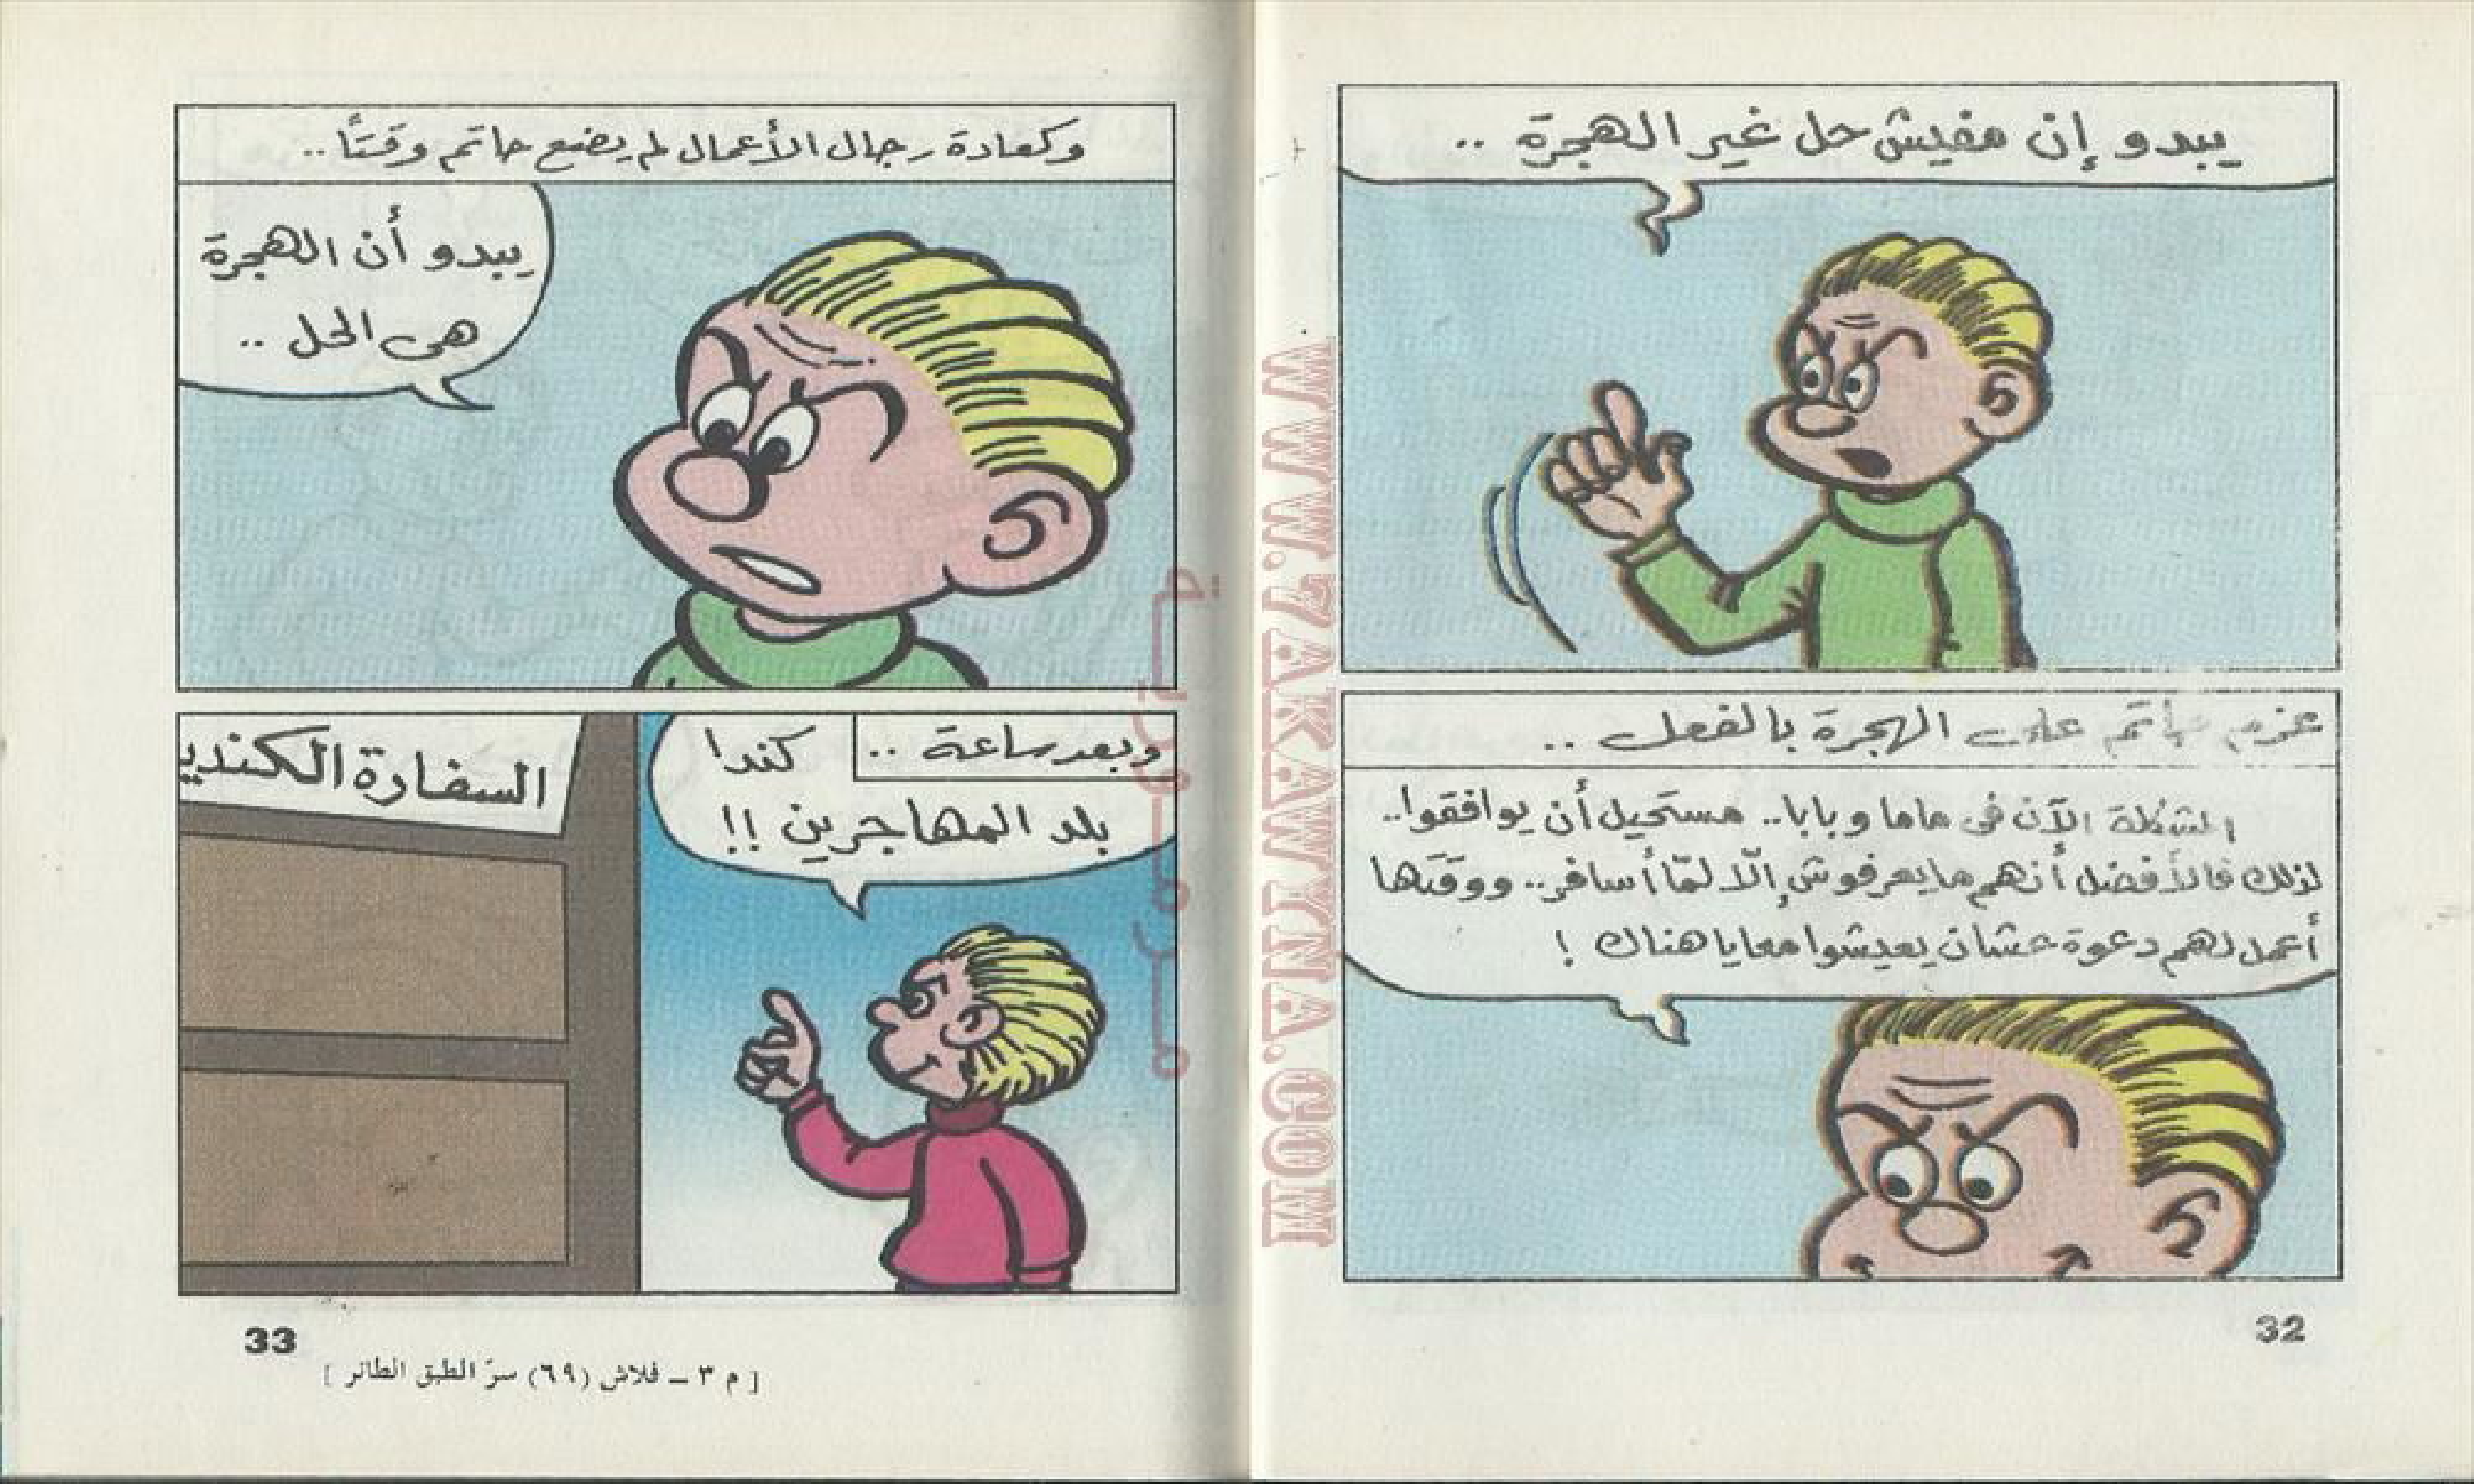 يبدو إن مفيش حل غير الهجرة ..
عزم حاتم على الهجرة بالفعل ..
المشكلة الآن فى ماما وبابا.. مستحيل أن يوافقوا..
لذلك فالأفضل أنهم مايعرفوش إلّا لمّا أسافر.. ووقتها
أعمل لهم دعوة عشان يعيشوا معايا هناك !
32
وكعادة رجال الأعمال لم يضع حاتم وقتًا ..
يبدو أن الهجرة
هى الحل ..
وبعد ساعة ..
كندا
بلد المهاجرين !!
السفارة الكندي
33
[ م ٣ – فلاش (٦٩) سرّ الطبق الطائر ]
WWW.7AKAWYNA.COM